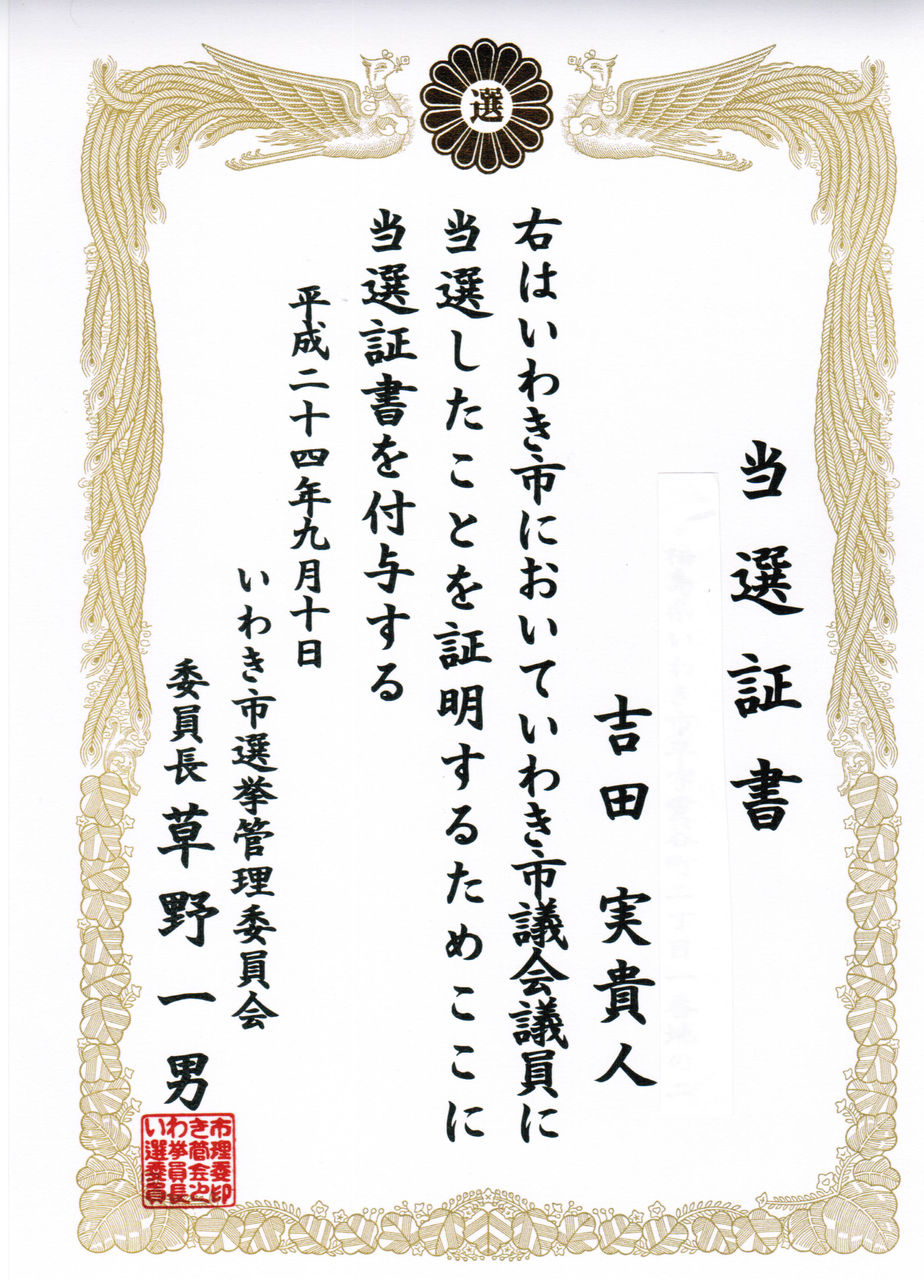 選
当選証書
吉田 実貴人
右はいわき市においていわき市議会議員に
当選したことを証明するためここに
当選証書を付与する
平成二十四年九月十日
いわき市選挙管理委員会
委員長 草野一男